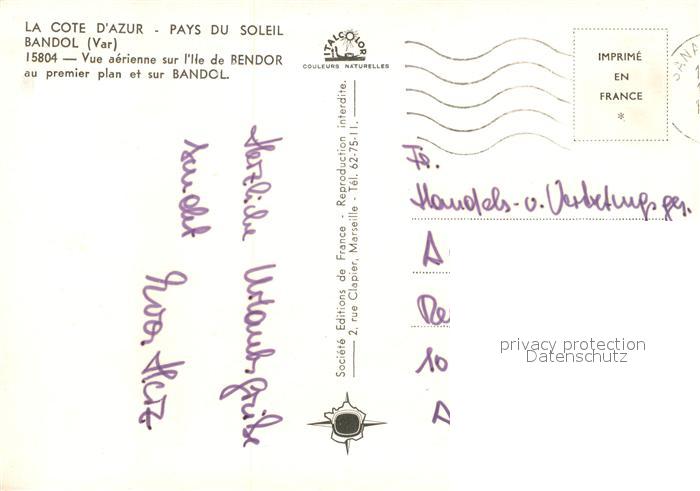 LA COTE D'AZUR - PAYS DU SOLEIL
BANDOL (Var)
15804 — Vue aérienne sur l'Ile de BENDOR
au premier plan et sur BANDOL.
ITALCOLOR
COULEURS NATURELLES
IMPRIMÉ
EN
FRANCE
*
SANA
Société Editions de France - Reproduction interdite.
2, rue Clapier, Marseille - Tél. 62-75-11.
Herzliche Urlaubsgrüße
sendet
Fa.
Handels- u. Vertretungsges.
A
Re
10
A
privacy protection
Datenschutz